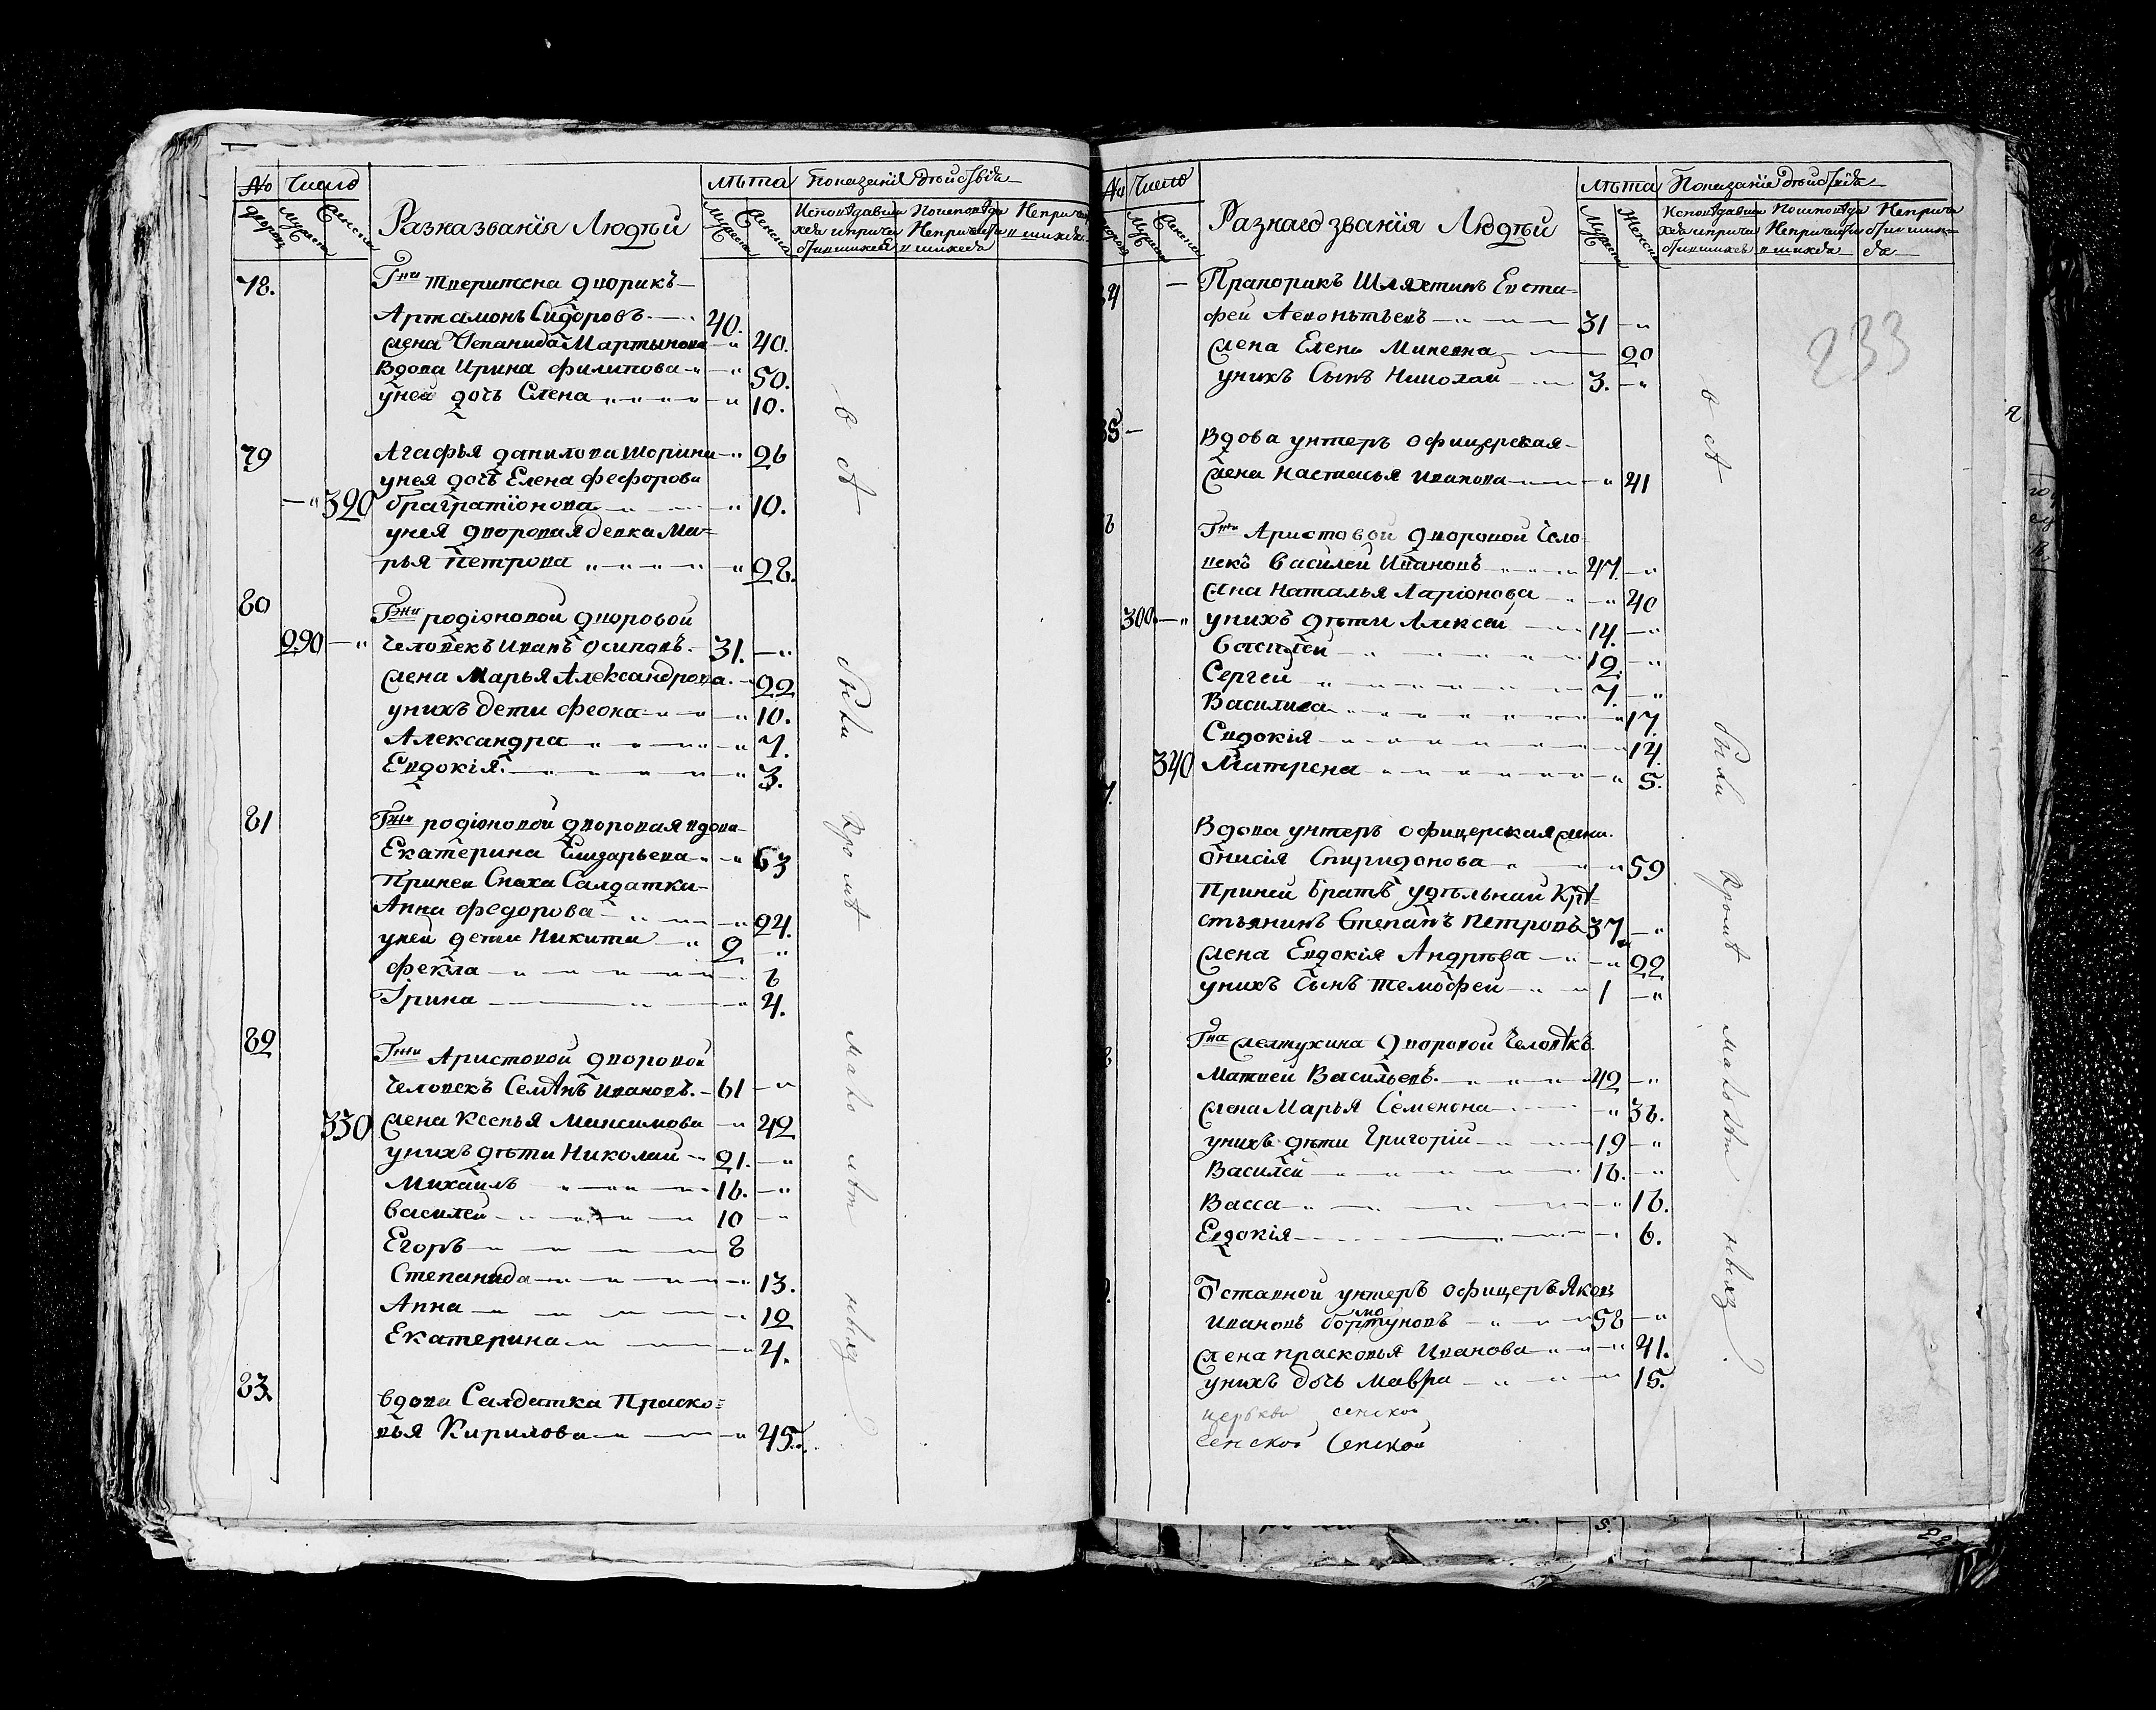 № Число Лѣта Показанія дѣйствія
дворов Мужеска Женска Разна званія Людѣй Мужеска Женска Исповѣдавши Поисповѣда Неприча
хся и прича Непричасти
стившихся вшихся
78. Гна Тверитена дворикъ
Артамонъ Сидоровъ 40.
жена Степанида Мартынова 40.
Вдова Ирина филипова 50.
у ней дочъ Елена 10.
79 Агафья данилова Шорина 26
у нея дочъ Елена феофорова
320 баграгратіонова 10.
у нея дворовая девка Ма-
рья Петрова 28.
80 Гжи родіоновой дворовой
290 человекъ Иванъ Осиповъ 31.
жена Марья Александрова 22
у нихъ дети феона 10.
Александра 7.
Евдокія 3.
81 Гжи родіоновой дворовая вдова
Екатерина Елизарьева 63
При ней Сноха Салдатка
Анна федорова 24.
у ней дети Никита 9
фекла 6
Ірина 4.
82 Гжи Аристовой дворовой
человекъ Семѣнъ Ивановъ 61
330 жена Ксенья Максимова 42
у нихъ дѣти Николай 21.
Михаилъ 16.
Василей 10
Егоръ 8
Степанида 13.
Анна 12
Екатерина 4.
83. вдова Салдатка Праско-
вья Кирилова 45.
всѣ были кромѣ малолѣтныхъ
№ Число Лѣта Показаніе дѣйствія
Мужеска Женска Разнаго званія Людѣй Мужеска Женска Исповѣдавши Поисповѣда Неприча
хся и прича Непричасти стивших
стившихся вшихся ся
233
84 Прапорикъ Шляхтинъ Евста-
фей Леонътьевъ 31
жена Елена Миневна 20
у нихъ Сынъ Николай 3.
85 Вдова унтеръ офицерская
жена Настасья Иванова 41
6 Гжи Аристовой дворовой чело-
векъ Василей Ивановъ 47.
жена Наталья Ларіонова 40
300 у нихъ дѣти Алексей 14.
Василей 12.
Сергей 7.
Василиса 17.
Евдокія 14.
340 Матрена 5.
7. Вдова унтеръ офицерская жена
Онисія Спиридонова 59
При ней Братъ удѣльный Крѣ-
стьянинъ Степанъ Петровъ 37
жена Евдокія Андрѣва 22
у нихъ Сынъ Темофей 1
8 Гна Желтухина дворовой человѣкъ
Матвей Васильевъ 42
жена Марья Семенона 36.
у нихъ дѣти Григорій 19
Василей 16.
Васса 16.
Евдокія 6.
9. Оставной унтеръ офицеръ Яков
Ивановъ Бортуновъ 58
мо
жена прасковья Иванова 41.
у нихъ дочъ Мавра 15.
церькви сенской
Сенской Сенской
всѣ были кромѣ малолѣтныхъ